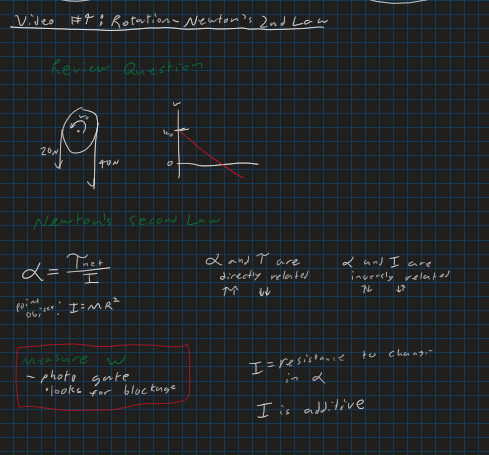 Video #4: Rotation - Newton's 2nd Law
Review Question
ω
ω₀
ω₀
20N
0
40N
Newton's Second Law
α = τnet / I
α and τ are
directly related
↑↑ ↓↓
α and I are
inversly related
↑↓ ↓↑
point
object: I = MR²
measure ω
- photo gate
• looks for blockage
I = resistance to change
in α
I is additive